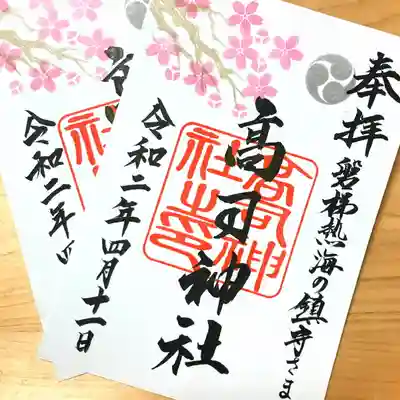 奉拝
磐梯熱海の鎮守さま
高司神社
令和二年四月十一日
令和二年